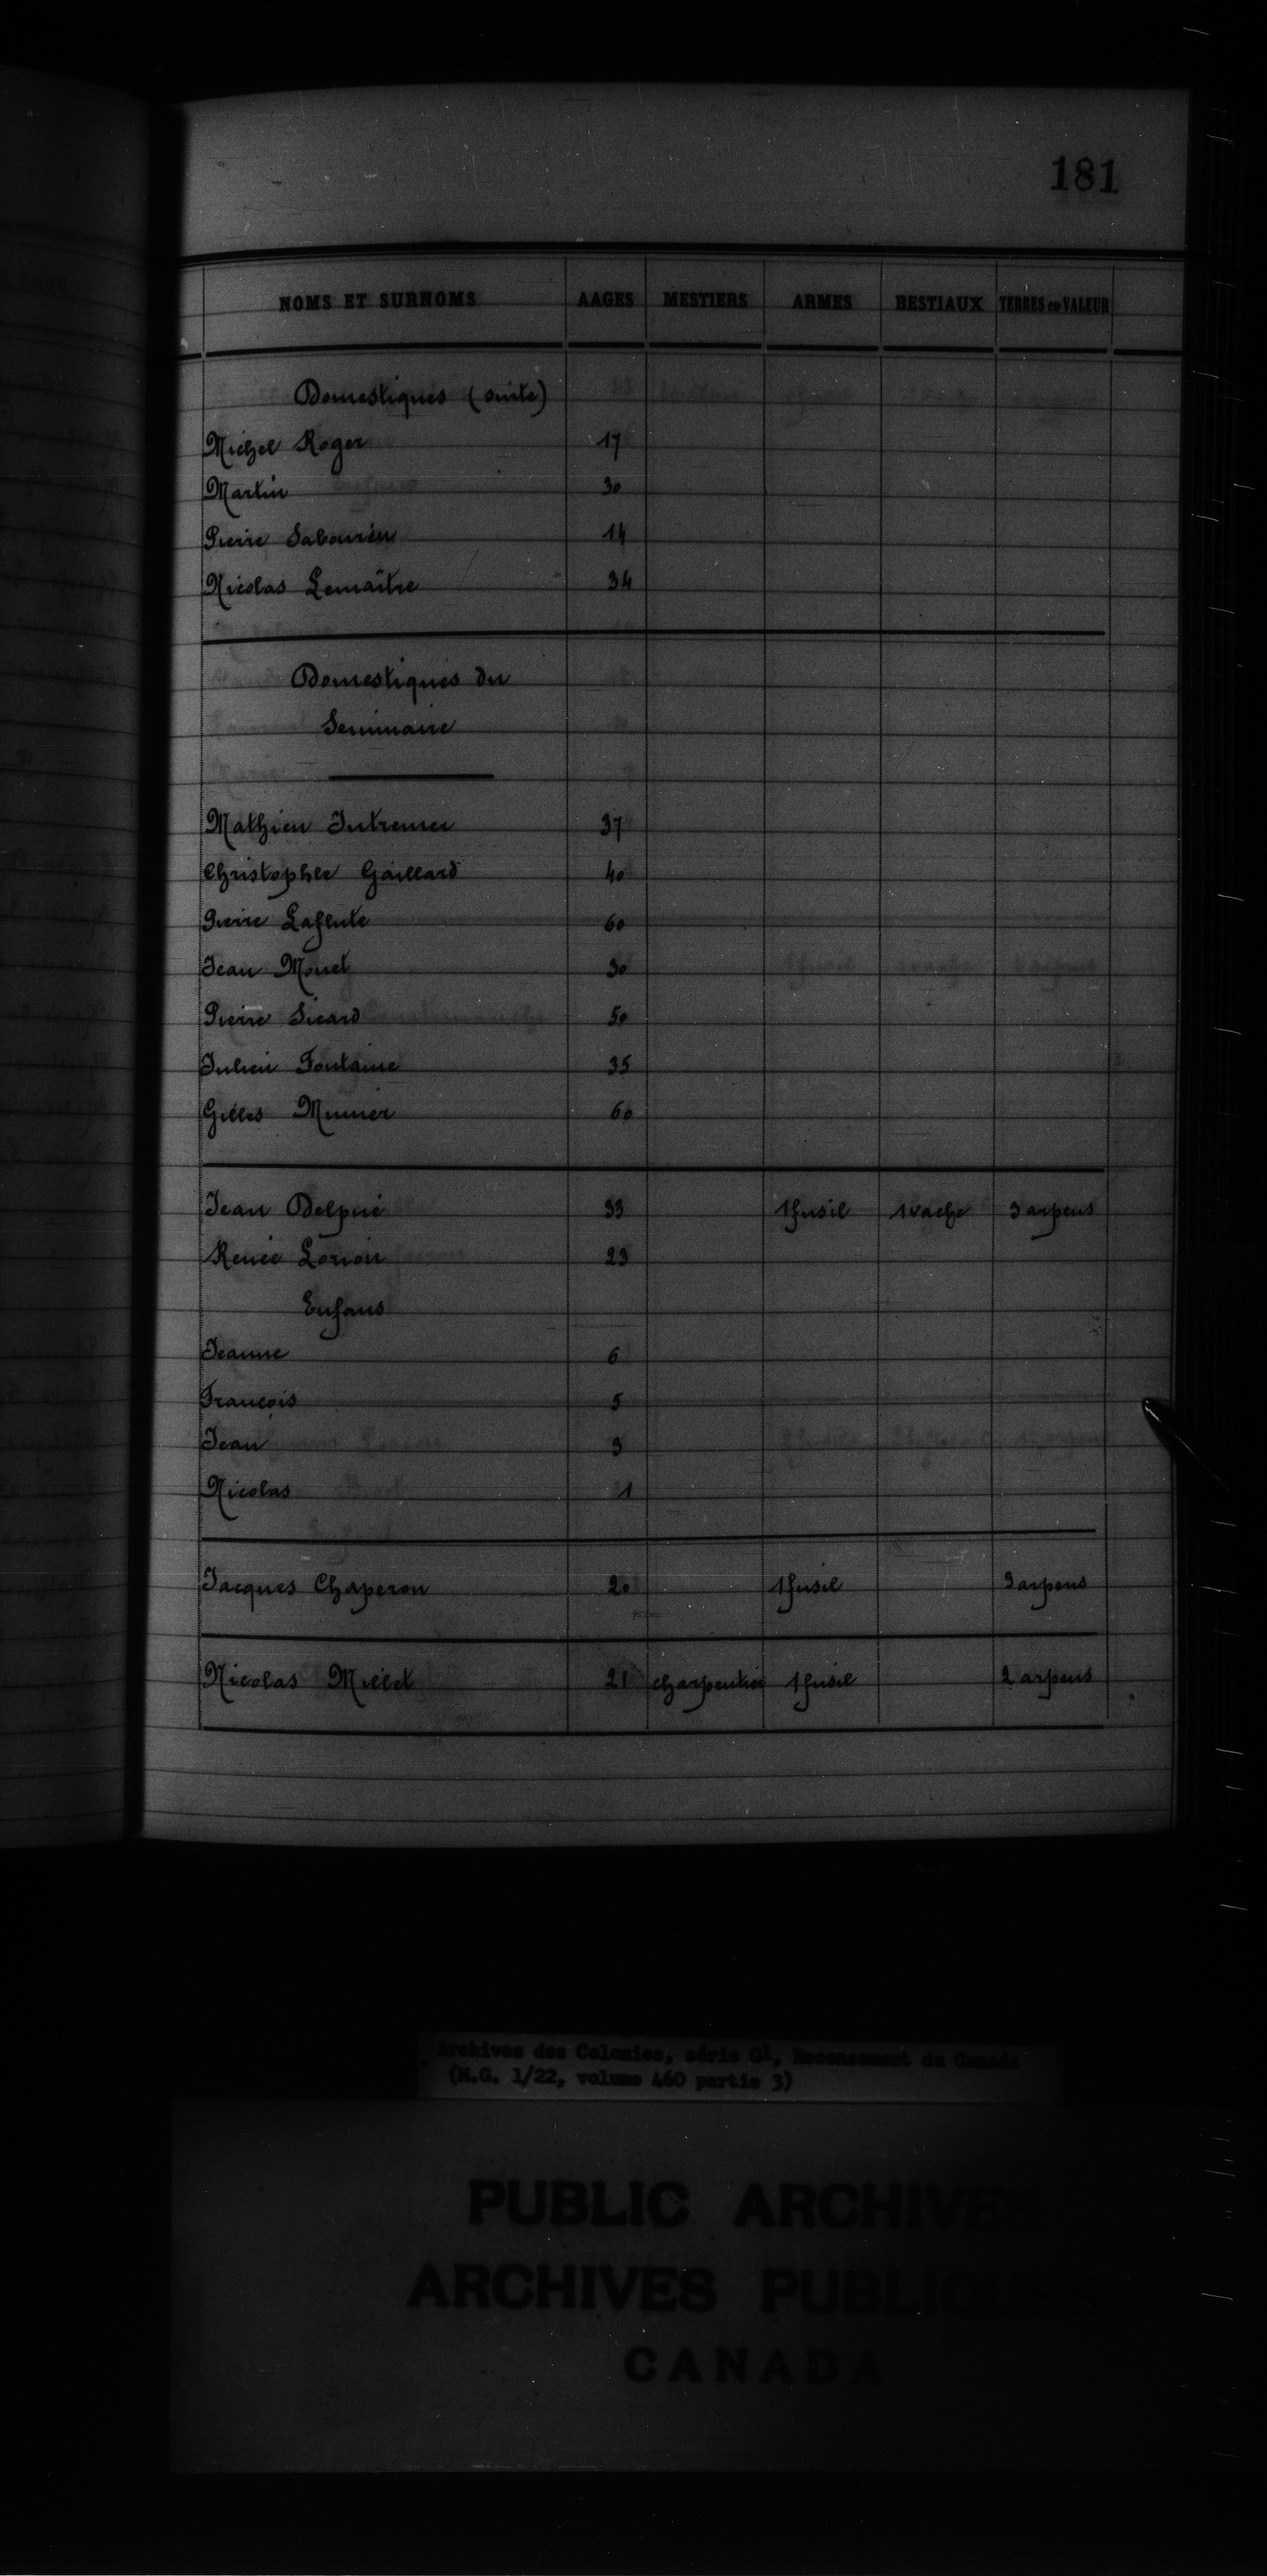 181
NOMS ET SURNOMS AAGES MESTIERS ARMES BESTIAUX TERRES en VALEUR
Domestiques (suite)
Michel Roger 17
Martin 30
Pierre Sabourin 14
Nicolas Lemaître 34
Domestiques du
Seminaire
Mathieu Intremer 37
Christophle Gaillard 40
Pierre Laflute 60
Jean Monet 30
Pierre Sicard 50
Julien Fontaine 35
Gilles Munier 60
Jean Delpué 33 1 fusil 1 vache 3 arpens
Renée Lorion 23
Enfans
Jeanne 6
François 5
Jean 3
Nicolas 1
Jacques Chaperon 20 1 fusil 3 arpens
Nicolas Millet 21 charpentier 1 fusil 2 arpens
Archives des Colonies, série G1, Recensement du Canada
(M.G. 1/22, volume 460 partie 3)
PUBLIC ARCHIVES
ARCHIVES PUBLIQUES
CANADA